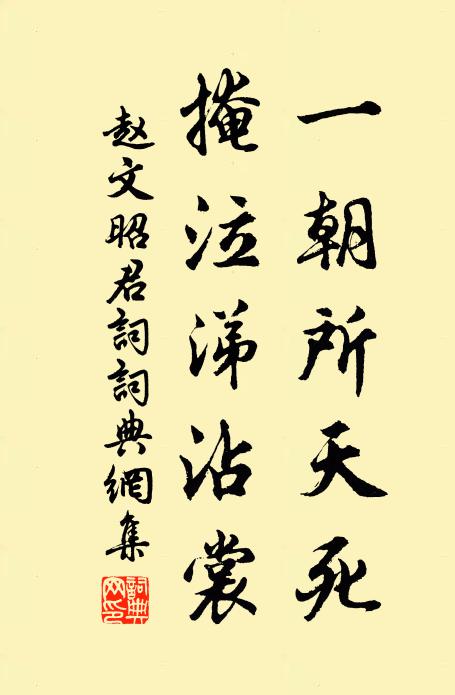 一朝所天死
掩泣涕沾裳
赵文昭君詞詞典網集
詞典網印